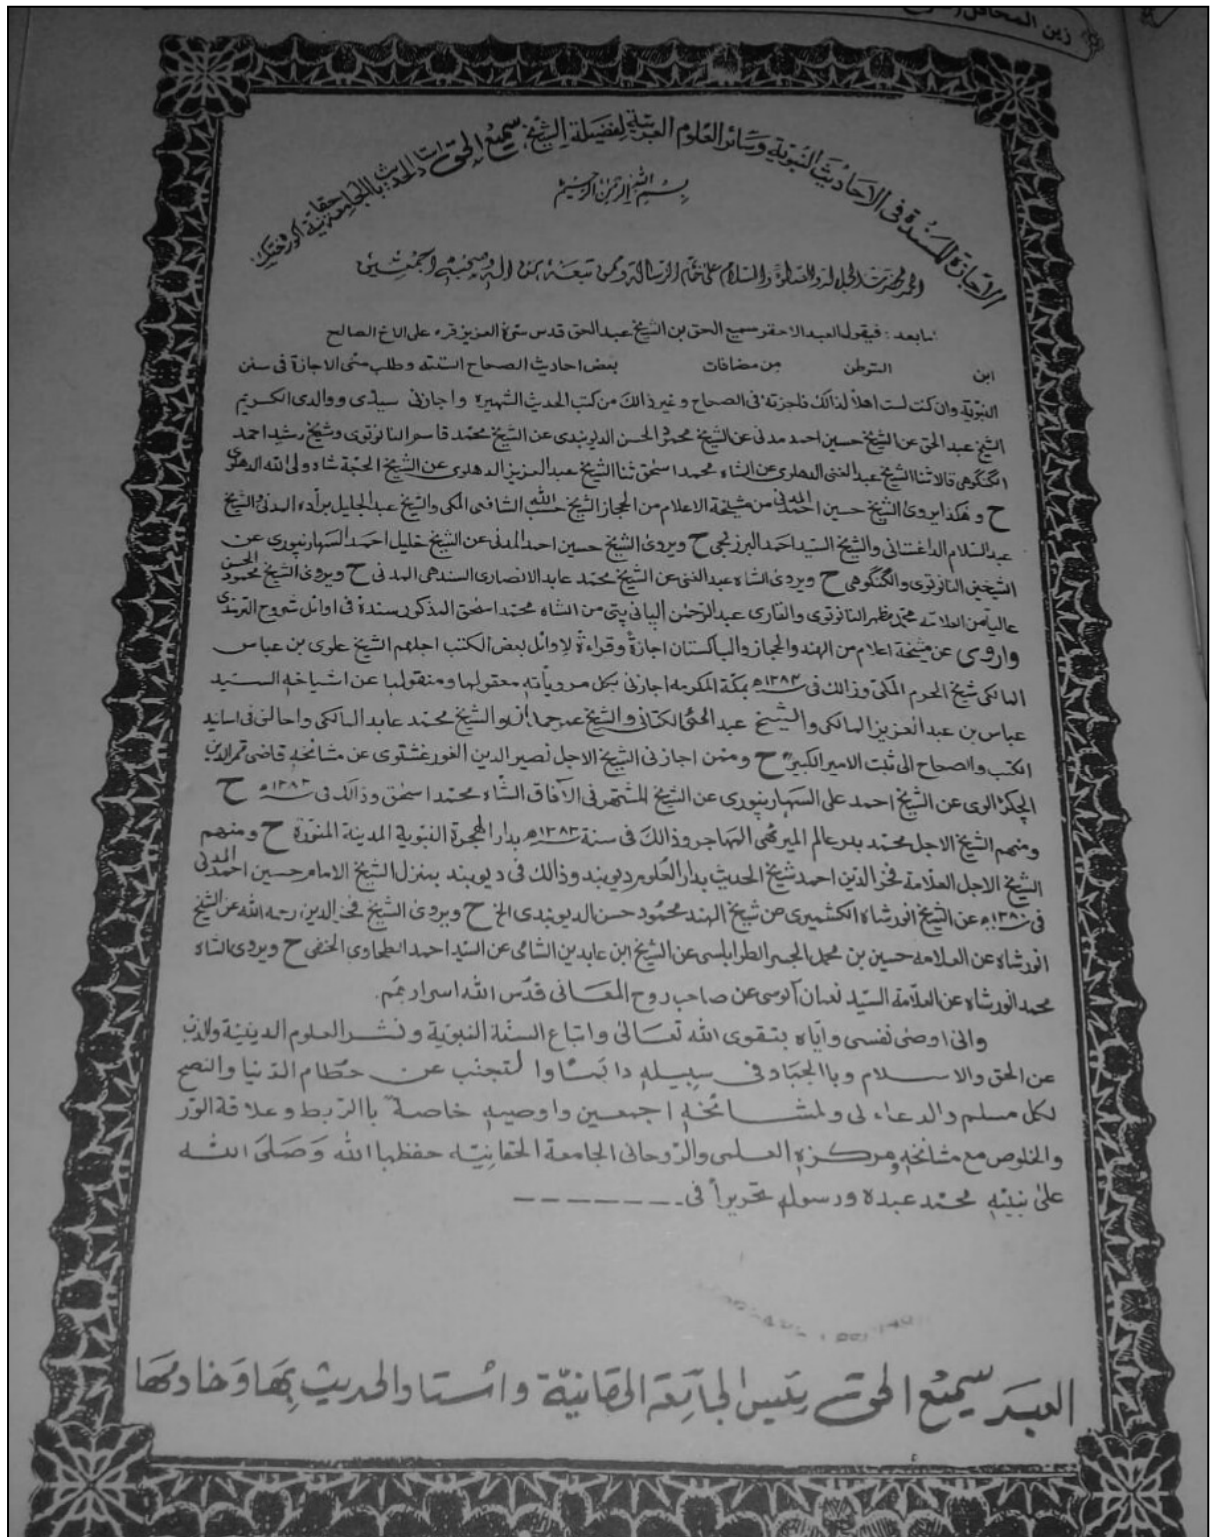 زين المحافل
الاجازة المسندة فى الاحاديث النبوية وسائر العلوم العربية لفضيلة الشيخ سميع الحق استاذ الحديث بالجامعة حقانية اكوره ختك
بسم الله الرحمن الرحيم
الحمد لحضرت الجلالة والصلوٰة والسلام على خاتم الرسالة ومن تبعه من اله وصحبه اجمعين
امابعد: فيقول العبد الاحقر سميع الحق بن الشيخ عبدالحق قدس سرّة العزيز قرء على الاخ الصالح
ابن المتوطن من مضافات بعض احاديث الصحاح الستته وطلب منى الاجازة فى سنن
النبوّية وان كنت لست اهلاً لذالك فاجزته فى الصحاح وغير ذالك من كتب الحديث الشهيره واجازنى سيدى ووالدى الكريم
الشيخ عبد الحق عن الشيخ حسين احمد مدنى عن الشيخ محمود الحسن الديوبندى عن الشيخ محمد قاسم النانوتوى وشيخ رشيد احمد
الگنگوهى قالا ثنا الشيخ عبد الغنى الدهلوى عن الشاه محمد اسحٰق ثنا الشيخ عبد العزيز الدهلوى عن الشيخ الحجة شاه ولى الله الدهلوى
ح و هٰكذا يروى الشيخ حسين احمد المدنى من مشيخة الاعلام من الحجاز الشيخ حسب الله الشافعى المكى والشيخ عبد الجليل براده المدنى والشيخ
عبد السلام الداغستانى والشيخ السيد احمد البرزنجى ح ويروى الشيخ حسين احمد المدنى عن الشيخ خليل احمد السهارنپورى عن
الشيخين النانوتوى والگنگوهى ح ويروى الشاه عبد الغنى عن الشيخ محمد عابد الانصارى السندهى المدنى ح ويروى الشيخ محمود الحسن
عالياً من العلامه محمد مظهر النانوتوى والقارى عبد الرحمٰن البانى پتى من الشاه محمد اسحٰق المذكور سندة فى اوائل شروح الترمذى
واروى عن مشيخة اعلام من الهند والحجاز والباكستان اجازة وقراءة لاوائل بعض الكتب اجلهم الشيخ علوى بن عباس
المالكى شيخ الحرم المكى وذالك فى ١٣٨٣ھ بمكة المكرمه اجازنى بكل مروياته معقولها ومنقولها عن اشياخه السيد
عباس بن عبد العزيز المالكى والشيخ عبد الحئ الكتانى والشيخ عمر حمدان والشيخ محمد عابد المالكى واحالنى فى اسانيد
الكتب والصحاح الى ثبت الامير الكبير ح وممن اجازنى الشيخ الاجل نصير الدين الغورغشتوى عن مشائخه قاضى قمر الدين
الچكڑالوى عن الشيخ احمد على السهارنپورى عن الشيخ المشتهر فى الآفاق الشاه محمد اسحٰق وذالك فى ١٣٨٣ھ ح
ومنهم الشيخ الاجل محمد بدر عالم الميرٹهى المهاجر وذالك فى سنة ١٣٨٣ھ بدار الهجرة النبوية المدينة المنورة ح ومنهم
الشيخ الاجل العلامة فخر الدين احمد شيخ الحديث بدار العلوم ديوبند وذالك فى ديوبند بمنزل الشيخ الامام حسين احمد المدنى
فى ١٣٨٠ھ عن الشيخ انور شاه الكشميرى من شيخ الهند محمود حسن الديوبندى الخ ح ويروى الشيخ فخر الدين رحمه الله عن الشيخ
انور شاه عن العلامه حسين بن محمد الجسر الطرابلسى عن الشيخ ابن عابدين الشامى عن السيد احمد الطحاوى الحنفى ح ويروى الشاه
محمد انور شاه عن العلّامة السيّد نعمان آلوسى عن صاحب روح المعانى قدس الله اسرارهم
وانى اوصى نفسى واياه بتقوى الله تعالىٰ واتباع السنة النبوية ونشر العلوم الدينية والذب
عن الحق والاسلام وبالجهاد فى سبيله دائماً والتجنب عن حطام الدنيا والنصح
لكل مسلم والدعاء لى ولمشائخه اجمعين واوصيه خاصة بالربط وعلاقة الود
والخلوص مع مشائخه ومركزه العلمى والروحانى الجامعة الحقانيّه حفظها الله وَصَلى الله
علىٰ نبيّه محمد عبده ورسوله تحريراً فى - - - - - - -
العبد سميع الحق رئيس الجامعة الحقانية واستاد الحديث بها وخادمها